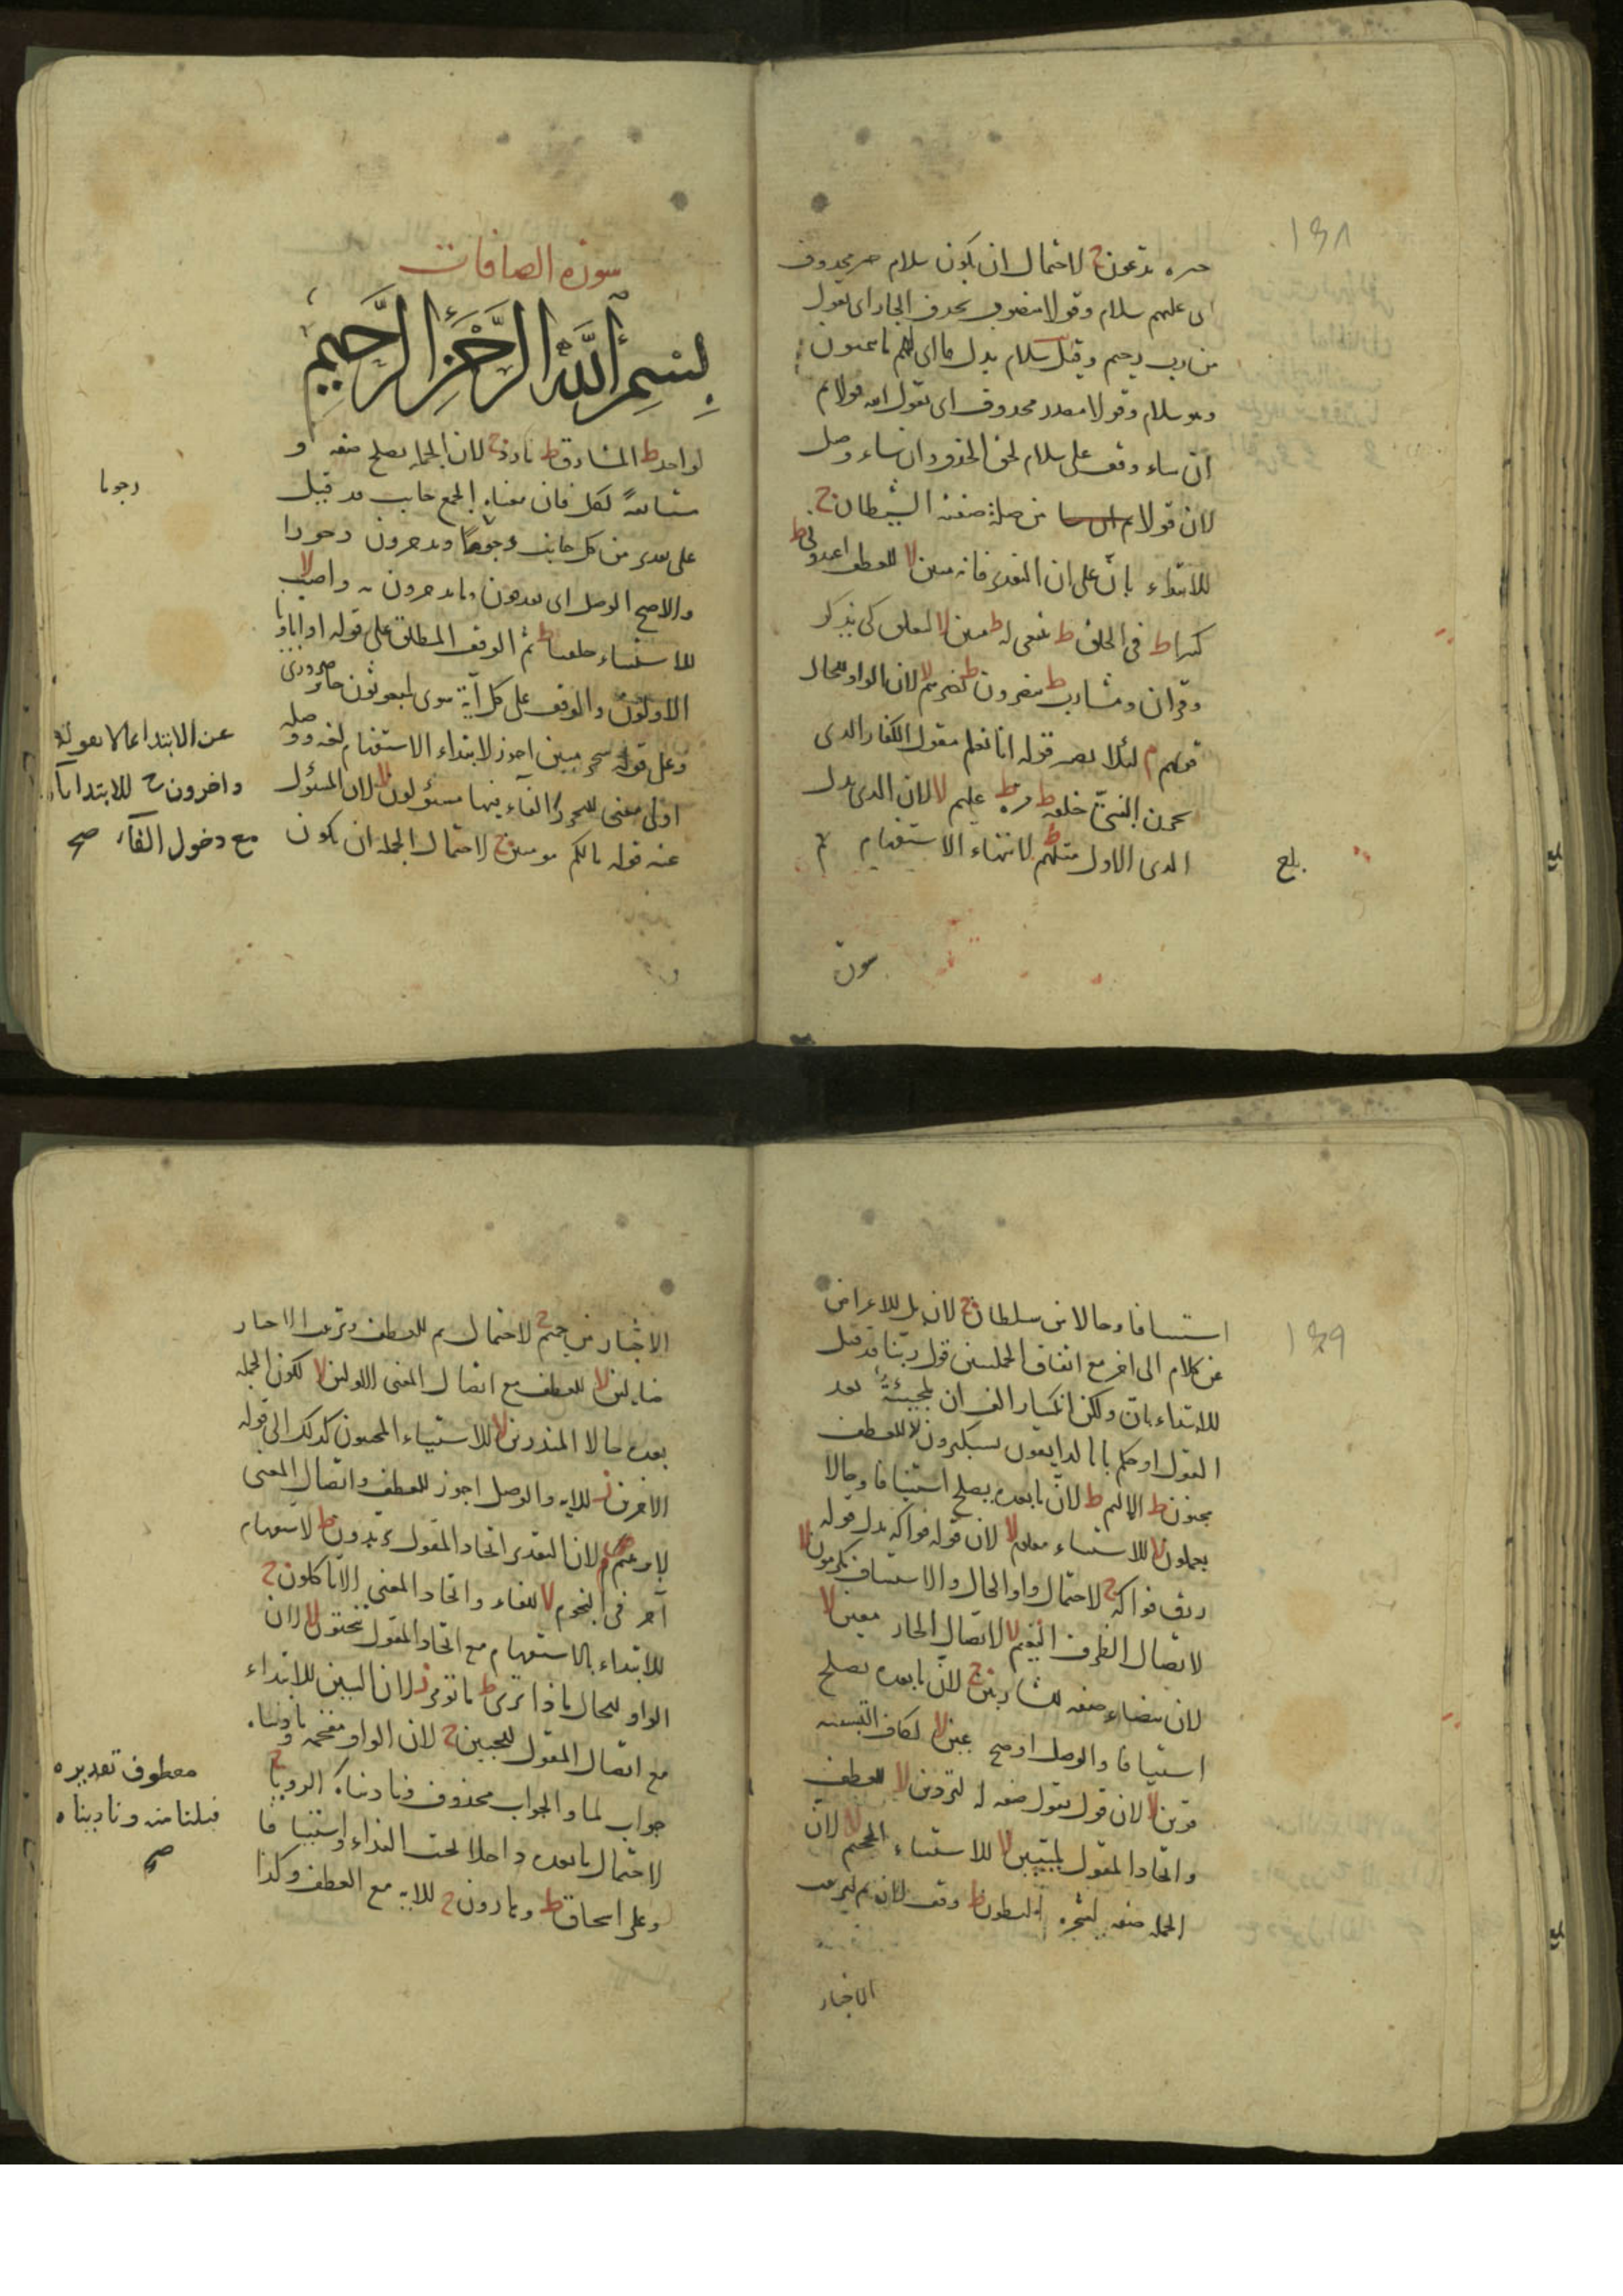 ١٣٨
يدعون ج لاحتمال ان يكون سلام خبر محذوف
اى عليهم سلام وقولا منصوب بحذف الجار اى بقول
من رب رحيم وقيل سلام بدل ما اى لهم ما يتمنون
وهو سلام وقولا مصدر محذوف اى يقول الله قولا ثم
ان شاء وقف على سلام لحق الحذف وان شاء وصل
لان قولا من صلة صفته الشيطان ج
للابتداء بان على ان التقدير فانه مبين لا للعطف اعبدونى ط
كثيرا ط فى الخلق ط ينبغى له ط مبين لا لتعلق كى ينذر
وقرآن ومشارب ط ينصرون ط نصرهم لا لان الواو للحال
قولهم م لئلا يصير قوله انا نعلم مقول الكفار الذى
يحزن النبى خلقه ط مرة ط عليم لا لان الذى بدل
الذى الاول مثلهم ط لانتهاء الاستفهام ثم
بلغ
سورة
سورة الصافات
بسم الله الرحمن الرحيم
لواحد ط المشارق ط مارد ج لان الجملة تصلح صفة او
مستأنفة لكل فان معناه الجمع جانب قد قيل
على يقذفون من كل جانب ويقذفون دحورا
والاصح الوصل اى يقذفون ما يدحرون به واصب لا
للاستثناء خلقنا ط ثم الوقف المطلق على قوله او اباؤنا
الاولون والوقف على كل آية سوى لمبعوثون جائز ضرورى
وعلى قوله سحر مبين اجوز لابتداء الاستفهام
اولى معنى الفاء فيها مسئولون لا لان المسئول
عنه قوله مالكم مومنين ج لاحتمال الجملة ان يكون
وجوبا
عن الابتداء مالا يعوله
واخرون ج للابتداء بان
مع دخول الفاء صح
١٣٩
استئنافا وحالا من سلطان ج لان بل للاعراض
عن كلام الى اخر مع اتفاق الجملتين قول ربنا قد قيل
للابتداء بان ولكن انكسار الف ان لمجيئة بعد
القول او حكم بانا لذائقون يستكبرون لا للعطف
مجنون ط الاليم ط لان ما بعده يصلح استئنافا وحالا
يعملون لا للاستثناء معلوم لا لان قوله فواكه بدل قوله
رزق فواكه ج لاحتمال واو الحال والاستئناف مكرمون لا
لاتصال الظرف النعيم لا لاتصال الحار معين لا
لان بيضاء صفة للشاربين ج لان ما بعده يصلح
استئنافا والوصل اوضح عين لا لكاف التشبيه
قرين لا لان قول يقول صفة له لتردين لا للعطف
واتحاد المقول بميتين لا للاستثناء الجحيم لا لان
الجملة صفة لشجرة البطون ط وقف لان ثم لترتيب
الاخبار
الاخبار من جحيم ج لاحتمال ثم للعطف وترتيب الاخبار
ضالين لا للعطف مع اتصال المعنى الاولين لا لكون الجملة
بعده حالا المنذرين لا للاستثناء المجيبون كذلك الى قوله
الاخرين ز للآية والوصل اجوز للعطف واتصال المعنى
لابرهيم م لان التقدير اتحاد المقول تريدون ط لاستفهام
آخر فى النجوم لا للفاء واتحاد المعنى الا تأكلون ج
للابتداء بالاستفهام مع اتحاد المقول تنحتون لا لان
الواو للحال ماذا ترى ط ما تؤمر ز لان السين للابتداء
مع اتصال المقول للجبين ج لان الواو مقحمة وناديناه
جواب لما والجواب محذوف وناديناه الرويا ج
لاحتمال ما بعده داخلا تحت النداء واستئنافا
وعلى اسحاق ط وهارون ج للآية مع العطف وكذا
معطوف تقديره
قبلنا منه وناديناه
صح